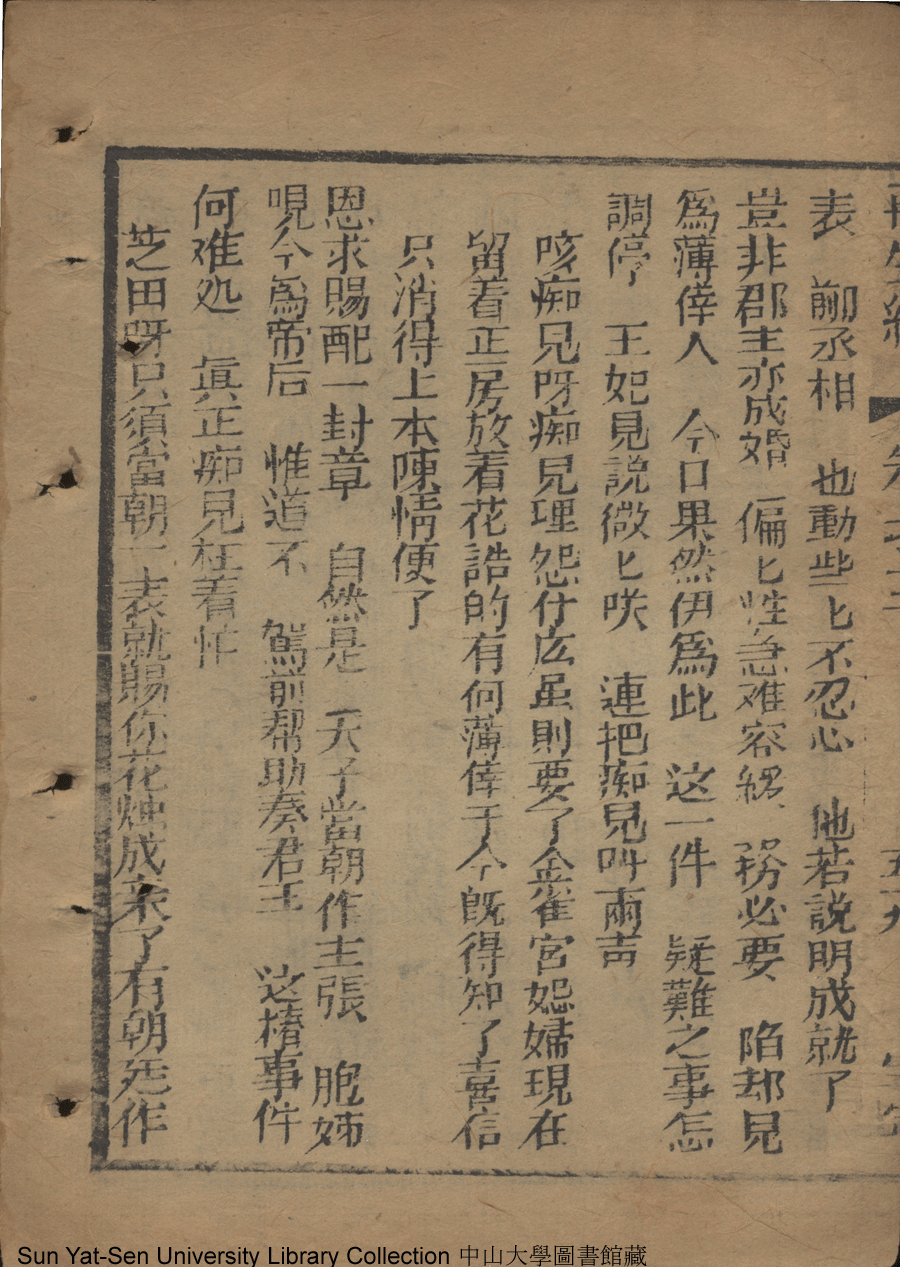 再生縁
表　酈丞相　也動些匕不忍心　他若説明成就了
豈非郡主亦成婚　偏匕性急难容緩　務必要　陷却見
爲薄倖人　今日果然伊爲此　这一件　疑難之事怎
調停　王妃見説微匕咲　連把痴兒叫兩声
咳痴兒呀痴兒埋怨什広虽則要了金雀宮怨婦現在
留着正房放着花誥的有何薄倖于今既得知了喜信
只消得上本陳情便了
恩求賜配一封章　自然是　天子當朝作主張　胞姊
現今爲帝后　惟道不　駕前帮助奏君王　这樁事件
何难処　眞正痴兒枉着忙
芝田呀只須當朝一表就賜你花烛成亲了有朝廷作
Sun Yat-Sen University Library Collection 中山大學圖書館藏